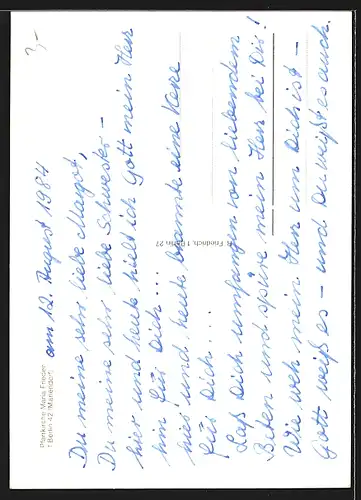 Pfarrkirche Maria Frieden
1 Berlin 42 (Mariendorf)
am 12. August 1984
Du meine sehr, liebe Margot,
Du meine sehr liebe Schwester –
hier und heute hielt ich Gott mein Herz
hin für Dich ...
hier und heute brannte eine Kerze
für Dich ...
Laß Dich umfangen von liebendem
Beten und spüre mein Herz bei Dir!
Wie weh mein Herz um Dich ist –
Gott weiß es – und Du weißt es auch.
Friedrich, 1 Berlin 27
3,-